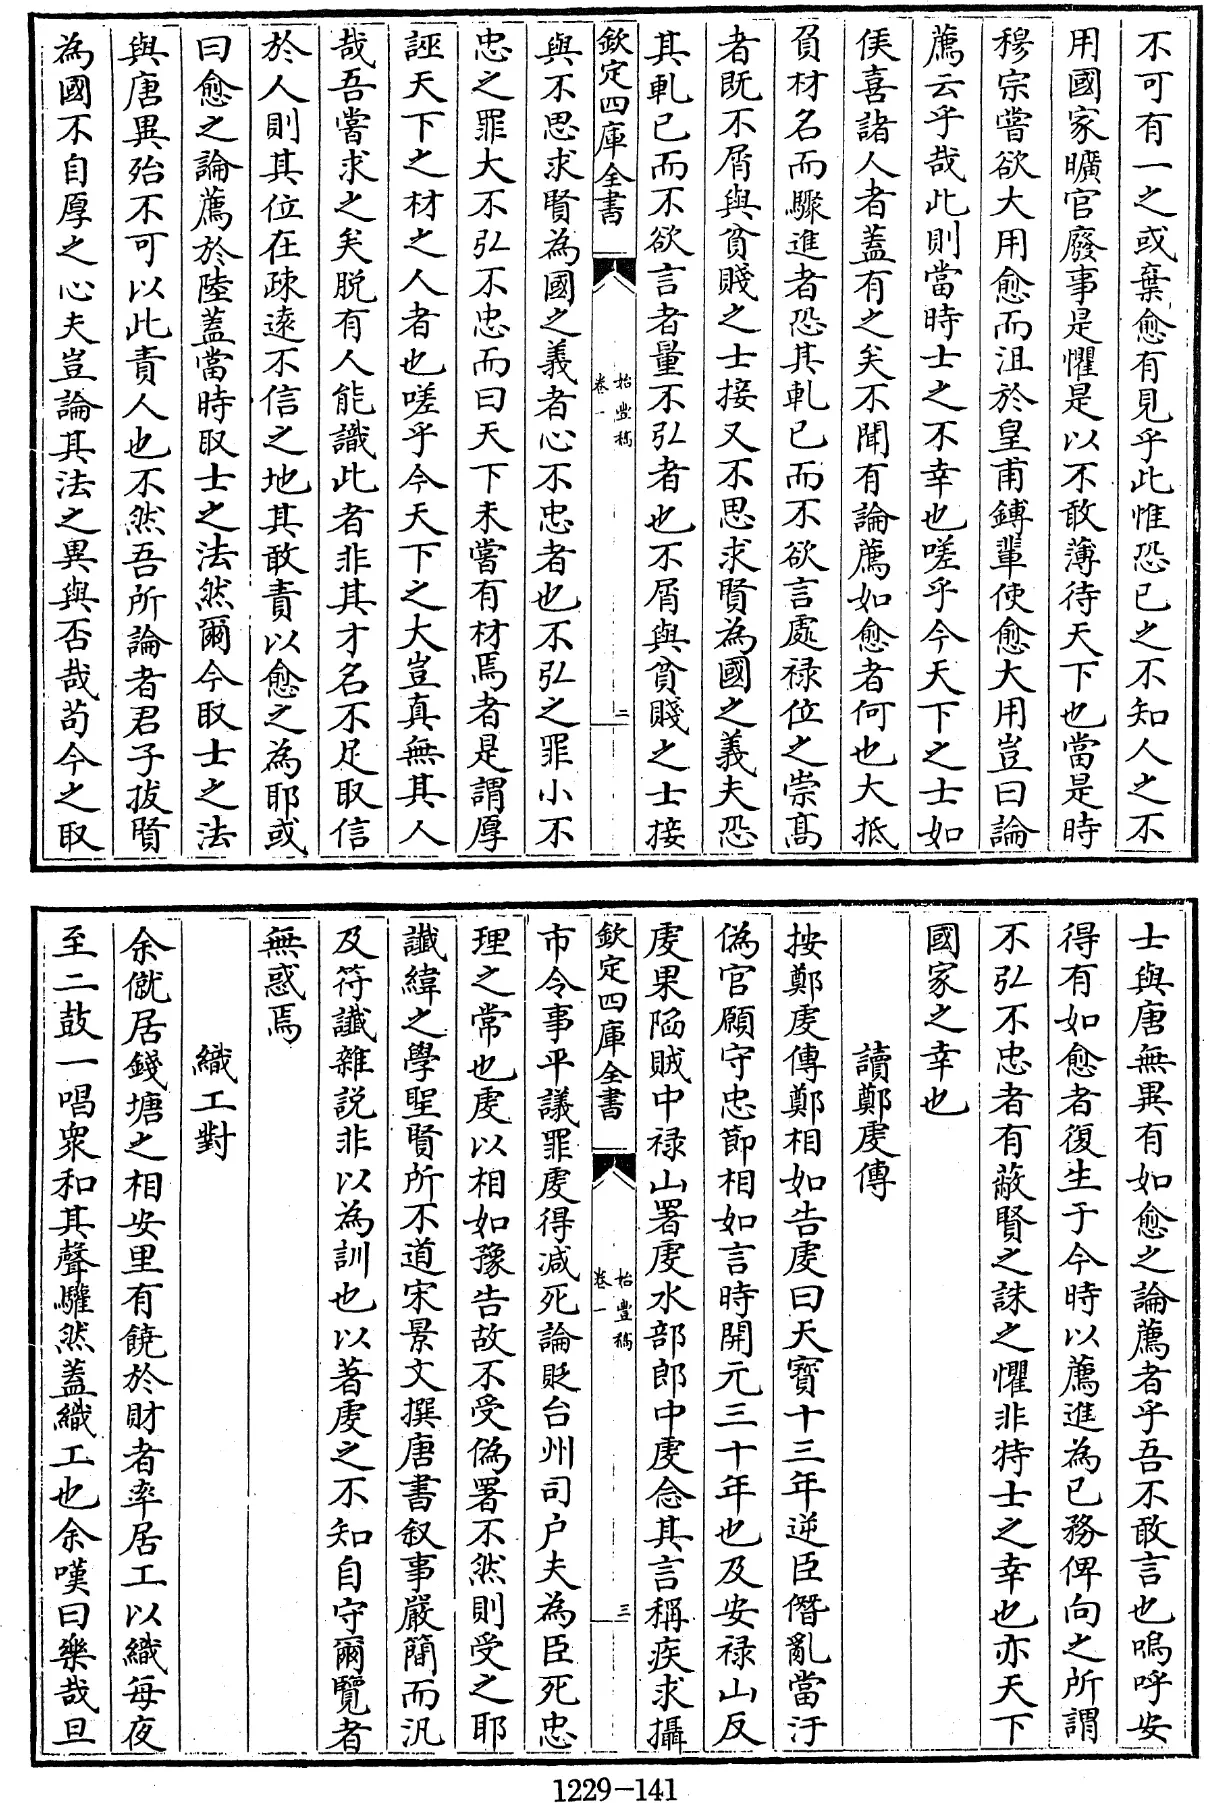 不可有一之或棄愈有見乎此惟恐已之不知人之不
用國家曠官廢事是懼是以不敢薄待天下也當是時
穆宗嘗欲大用愈而沮於皇甫鎛輩使愈大用豈曰論
薦云乎哉此則當時士之不幸也嗟乎今天下之士如
侯喜諸人者蓋有之矣不聞有論薦如愈者何也大抵
負材名而驟進者恐其軋已而不欲言處禄位之崇高
者既不屑與貧賤之士接又不思求賢為國之義夫恐
其軋已而不欲言者量不弘者也不屑與貧賤之士接
欽定四庫全書
始豐稿
卷一
二
與不思求賢為國之義者心不忠者也不弘之罪小不
忠之罪大不弘不忠而曰天下未嘗有材焉者是謂厚
誣天下之材之人者也嗟乎今天下之大豈真無其人
哉吾嘗求之矣脱有人能識此者非其才名不足取信
於人則其位在疎逺不信之地其敢責以愈之為耶或
曰愈之論薦於陸蓋當時取士之法然爾今取士之法
與唐異殆不可以此責人也不然吾所論者君子拔賢
為國不自厚之心夫豈論其法之異與否哉苟今之取
士與唐無異有如愈之論薦者乎吾不敢言也嗚呼安
得有如愈者復生于今時以薦進為已務俾向之所謂
不弘不忠者有蔽賢之誅之懼非特士之幸也亦天下
國家之幸也
讀鄭虔傳
按鄭虔傳鄭相如告虔曰天寳十三年逆臣僭亂當汙
偽官願守忠節相如言時開元三十年也及安禄山反
虔果陷賊中禄山署虔水部郎中虔念其言稱疾求攝
欽定四庫全書
始豐稿
卷一
三
市令事平議罪虔得减死論貶台州司户夫為臣死忠
理之常也虔以相如豫告故不受偽署不然則受之耶
讖緯之學聖賢所不道宋景文撰唐書叙事嚴簡而汎
及符讖雜説非以為訓也以著虔之不知自守爾覽者
無惑焉
織工對
余僦居錢塘之相安里有饒於財者率居工以織每夜
至二鼓一唱衆和其聲驩然蓋織工也余嘆曰樂哉旦
1229-141